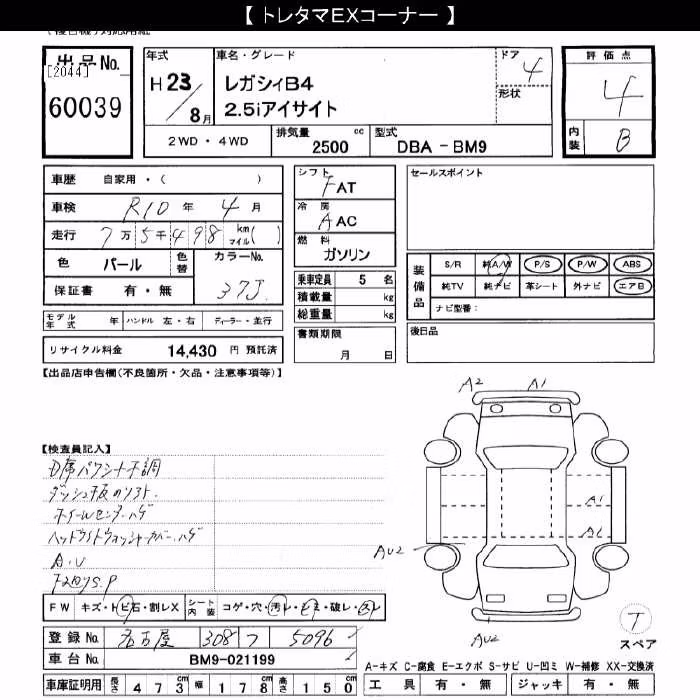 【 トレタマEXコーナー 】
出品No.
[2044]
60039
年式
H 23 / 8月
車名・グレード
レガシィB4
2.5iアイサイト
ドア
4
形状
評価点
4
内装
B
2WD ・ 4WD
排気量
2500
cc
型式
DBA - BM9
車歴 自家用・( )
車検 R10 年 4 月
走行 7万 5千 498 km マイル( )
色 パール
色替
カラーNo.
37J
保証書 有・無
モデル年式 年 ハンドル 左・右 ディーラー・並行
リサイクル料金 14,430 円 預託済
シフト
FAT
冷房
AAC
燃料
ガソリン
乗車定員 5 名
積載量 kg
総重量 kg
書類期限
月 日
セールスポイント
装備品
S/R 純A/W P/S P/W ABS
純TV 純ナビ 革シート 外ナビ エアB
ナビ型番:
後日品
【出品店申告欄(不良箇所・欠品・注意事項等)】
【検査員記入】
D席パワーシート不調
ダッシュ板のソフト
ホイールセンターハゲ
ヘッドライトウォッシャーカバーハゲ
A.U
A2 A1
A1
A1
AU2
AU2
T
スペア
FW キズ・トビ石・割レX
シート内装 コゲ・穴・汚レ・シミ・破レ・スレ
登録No. 名古屋 308 フ 5096
車台No. BM9-021199
車庫証明用 長さ 473cm 幅 178cm 高さ 150cm
A-キズ C-腐食 E-エクボ S-サビ U-凹ミ W-補修 XX-交換済
工具 有・無 ジャッキ 有・無